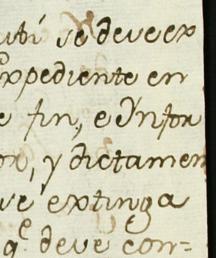 ubi se deve ex
expediente en
e fin, e Ynfor
or, y dictamen
ve extinga
q.e deve con=